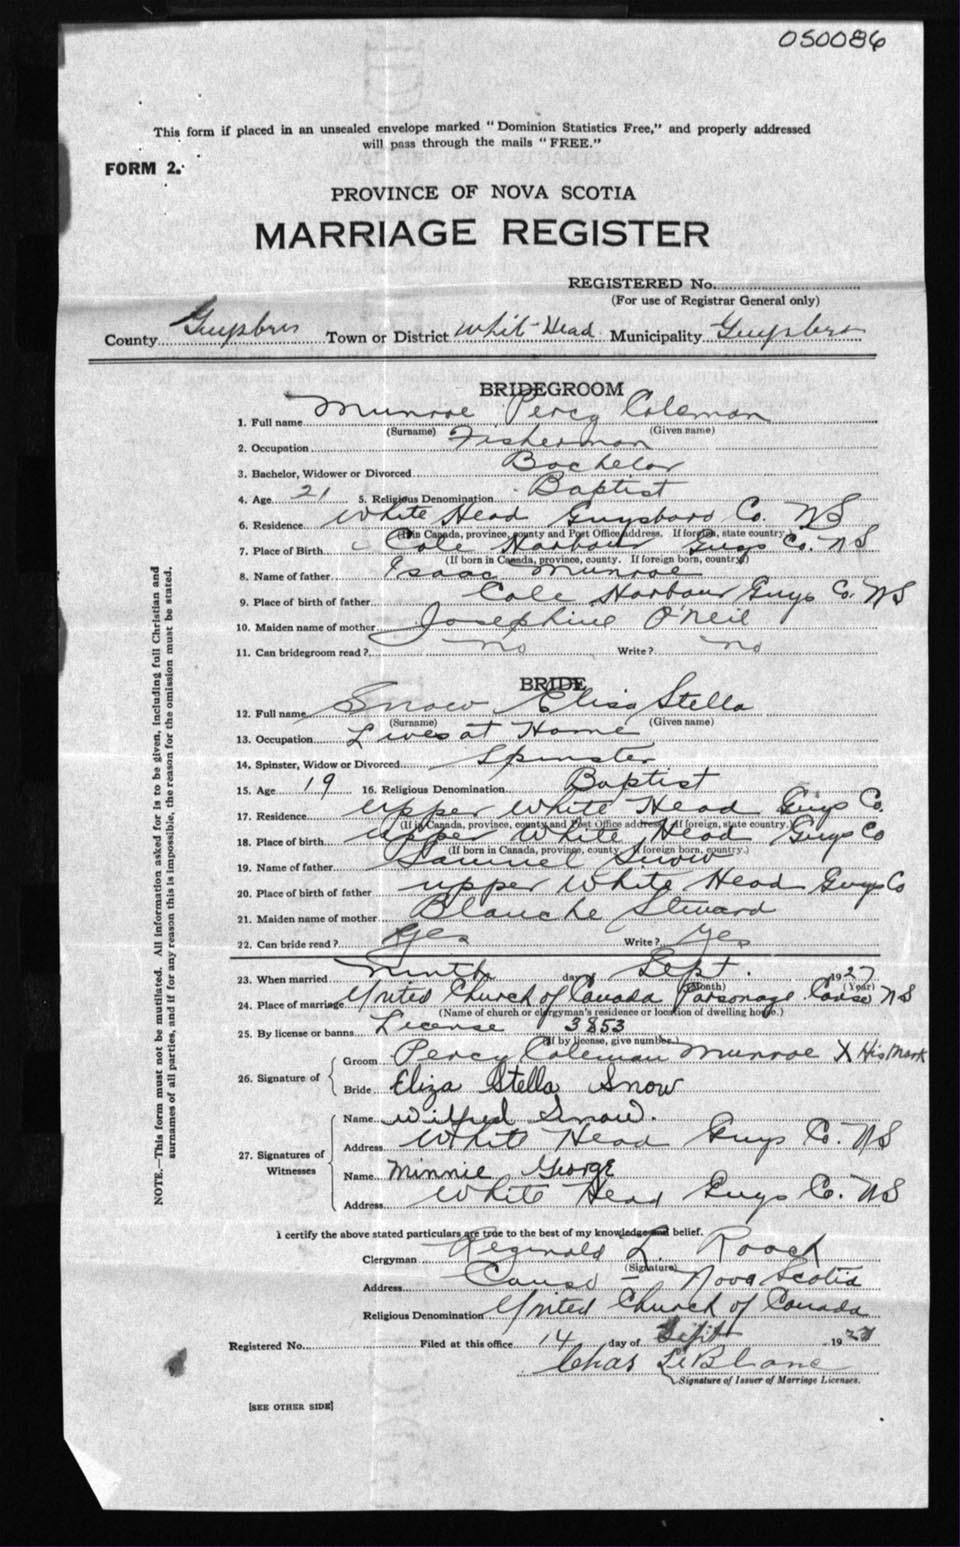 050086
This form if placed in an unsealed envelope marked "Dominion Statistics Free," and properly addressed
will pass through the mails "FREE."
FORM 2.
PROVINCE OF NOVA SCOTIA
MARRIAGE REGISTER
REGISTERED No.
(For use of Registrar General only)
County Guysboro Town or District Whit-Head Municipality Guysboro
BRIDEGROOM
1. Full name Munroe Percy Coleman
(Surname) (Given name)
2. Occupation Fisherman
3. Bachelor, Widower or Divorced Bachelor
4. Age 21 5. Religious Denomination Baptist
6. Residence White Head Guysboro Co. NS
(If in Canada, province, county and Post Office address. If foreign, state country.)
7. Place of Birth Cole Harbour Guys Co. NS
(If born in Canada, province, county. If foreign born, country.)
8. Name of father Isaac Munroe
9. Place of birth of father Cole Harbour Guys Co. NS
10. Maiden name of mother Josephine O'Neil
11. Can bridegroom read? no Write? no
BRIDE
12. Full name Snow Elisa Stella
(Surname) (Given name)
13. Occupation Lives at Home
14. Spinster, Widow or Divorced Spinster
15. Age 19 16. Religious Denomination Baptist
17. Residence Upper White Head Guys Co.
(If in Canada, province, county and Post Office address. If foreign, state country.)
18. Place of birth Upper White Head Guys Co
(If born in Canada, province, county. If foreign born, country.)
19. Name of father Samuel Snow
20. Place of birth of father Upper White Head Guys Co
21. Maiden name of mother Blanche Steward
22. Can bride read? Yes Write? Yes
23. When married Ninth day of Sept. 1927
(Month) (Year)
24. Place of marriage United Church of Canada Parsonage Canso NS
(Name of church or clergyman's residence or location of dwelling house.)
25. By license or banns License 3853
(If by license, give number.)
26. Signature of { Groom Percy Coleman Munroe X His Mark
Bride Eliza Stella Snow
27. Signatures of Witnesses { Name Wilfred Snow.
Address White Head Guys Co. NS
Name Minnie George
Address White Head Guys Co. NS
I certify the above stated particulars are true to the best of my knowledge and belief.
Clergyman Reginald L. Roach
(Signature)
Address Canso - Nova Scotia
Religious Denomination United Church of Canada
Registered No. Filed at this office 14 day of Sept 1927
Chas LeBlanc
Signature of Issuer of Marriage Licenses.
[SEE OTHER SIDE]
NOTE.—This form must not be mutilated. All information asked for is to be given, including full Christian and
surnames of all parties, and if for any reason this is impossible, the reason for the omission must be stated.